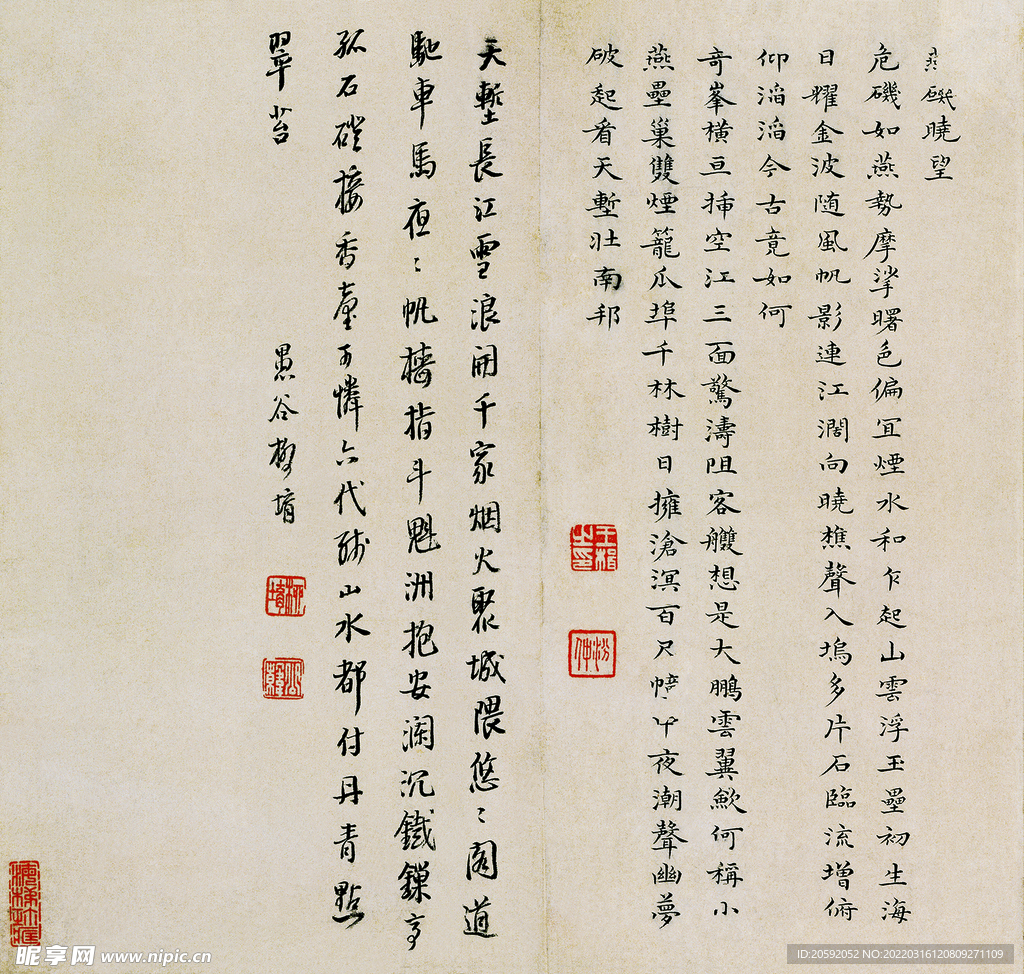 燕磯曉望
危磯如燕勢摩挲曙色偏冝煙水和乍起山雲浮玉壘初生海
日耀金波随風帆影連江濶向曉樵聲入塢多片石臨流增俯
仰滔滔今古竟如何
竒峯橫亘揷空江三面驚濤阻客艭想是大鵬雲翼歟何稱小
燕壘巢雙煙籠瓜埠千林樹日擁滄溟百尺幢午夜潮聲幽夢
破起看天塹壯南邦
王楫之印
汾仲
天塹長江雪浪開千家烟火聚城隈悠〻閣道
馳車馬夜〻帆檣指斗魁洲抱安瀾沉鐵鏁亭
孤石磴接香臺可憐六代殘山水都付丹青點
翠苔
愚谷柳堉
柳堉
昵享网 www.nipic.cn
ID:20592052 NO:20220316120809271109